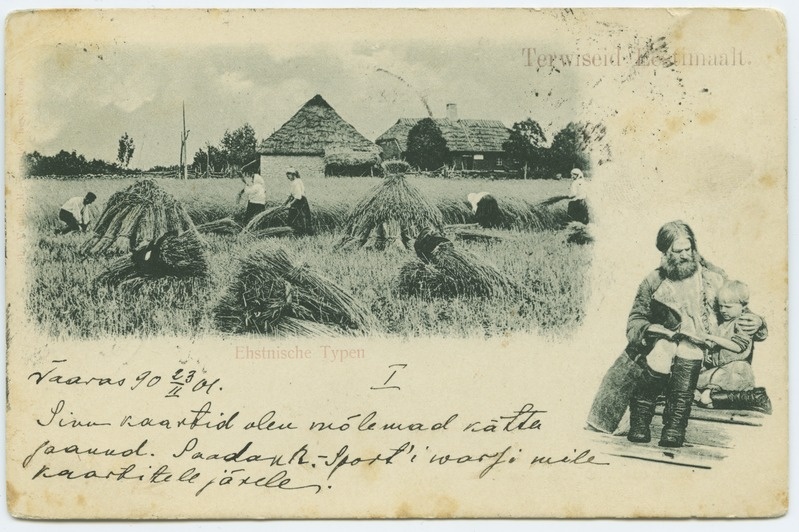 Terwiseid Eestimaalt.
Ehstnische Typen
I
23/II 01.
Sinu kaartid olen mõlemad kätte
saanud. Saadan K.-Sport'i warsi meile
kaartitele järele.